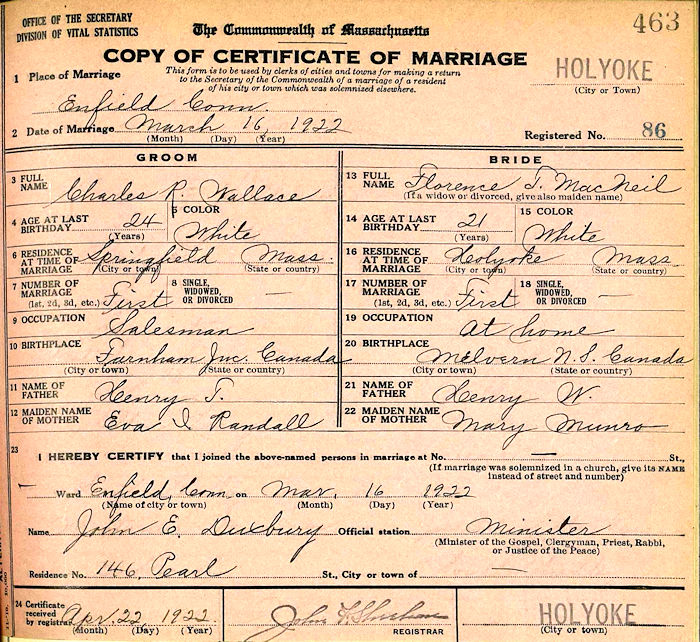 OFFICE OF THE SECRETARY
DIVISION OF VITAL STATISTICS
The Commonwealth of Massachusetts
463
COPY OF CERTIFICATE OF MARRIAGE
This form is to be used by clerks of cities and towns for making a return
to the Secretary of the Commonwealth of a marriage of a resident
of his city or town which was solemnized elsewhere.
HOLYOKE
(City or Town)
1 Place of Marriage
Enfield Conn.
2 Date of Marriage March 16, 1922
(Month) (Day) (Year)
Registered No. 86
GROOM
3 FULL NAME Charles R. Wallace
4 AGE AT LAST BIRTHDAY 24 (Years)
5 COLOR White
6 RESIDENCE AT TIME OF MARRIAGE Springfield Mass.
(City or town) (State or country)
7 NUMBER OF MARRIAGE (1st, 2d, 3d, etc.) First
8 SINGLE, WIDOWED, OR DIVORCED —
9 OCCUPATION Salesman
10 BIRTHPLACE Farnham Jnc. Canada
(City or town) (State or country)
11 NAME OF FATHER Henry T.
12 MAIDEN NAME OF MOTHER Eva I Randall
BRIDE
13 FULL NAME Florence T. MacNeil
(If a widow or divorced, give also maiden name)
14 AGE AT LAST BIRTHDAY 21 (Years)
15 COLOR White
16 RESIDENCE AT TIME OF MARRIAGE Holyoke Mass
(City or town) (State or country)
17 NUMBER OF MARRIAGE (1st, 2d, 3d, etc.) First
18 SINGLE, WIDOWED, OR DIVORCED —
19 OCCUPATION At home
20 BIRTHPLACE Melvern N.S. Canada
(City or town) (State or country)
21 NAME OF FATHER Henry W.
22 MAIDEN NAME OF MOTHER Mary Munro
23
I HEREBY CERTIFY that I joined the above-named persons in marriage at No. — St.,
(If marriage was solemnized in a church, give its NAME
instead of street and number)
Ward Enfield, Conn. on Mar. 16 1922
(Name of city or town) (Month) (Day) (Year)
Name John E. Duxbury Official station Minister
(Minister of the Gospel, Clergyman, Priest, Rabbi,
or Justice of the Peace)
Residence No. 146, Pearl St., City or town of —
24 Certificate received by registrar Apr. 22, 1922
(Month) (Day) (Year)
John F. Sheehan
REGISTRAR
HOLYOKE
(City or town)